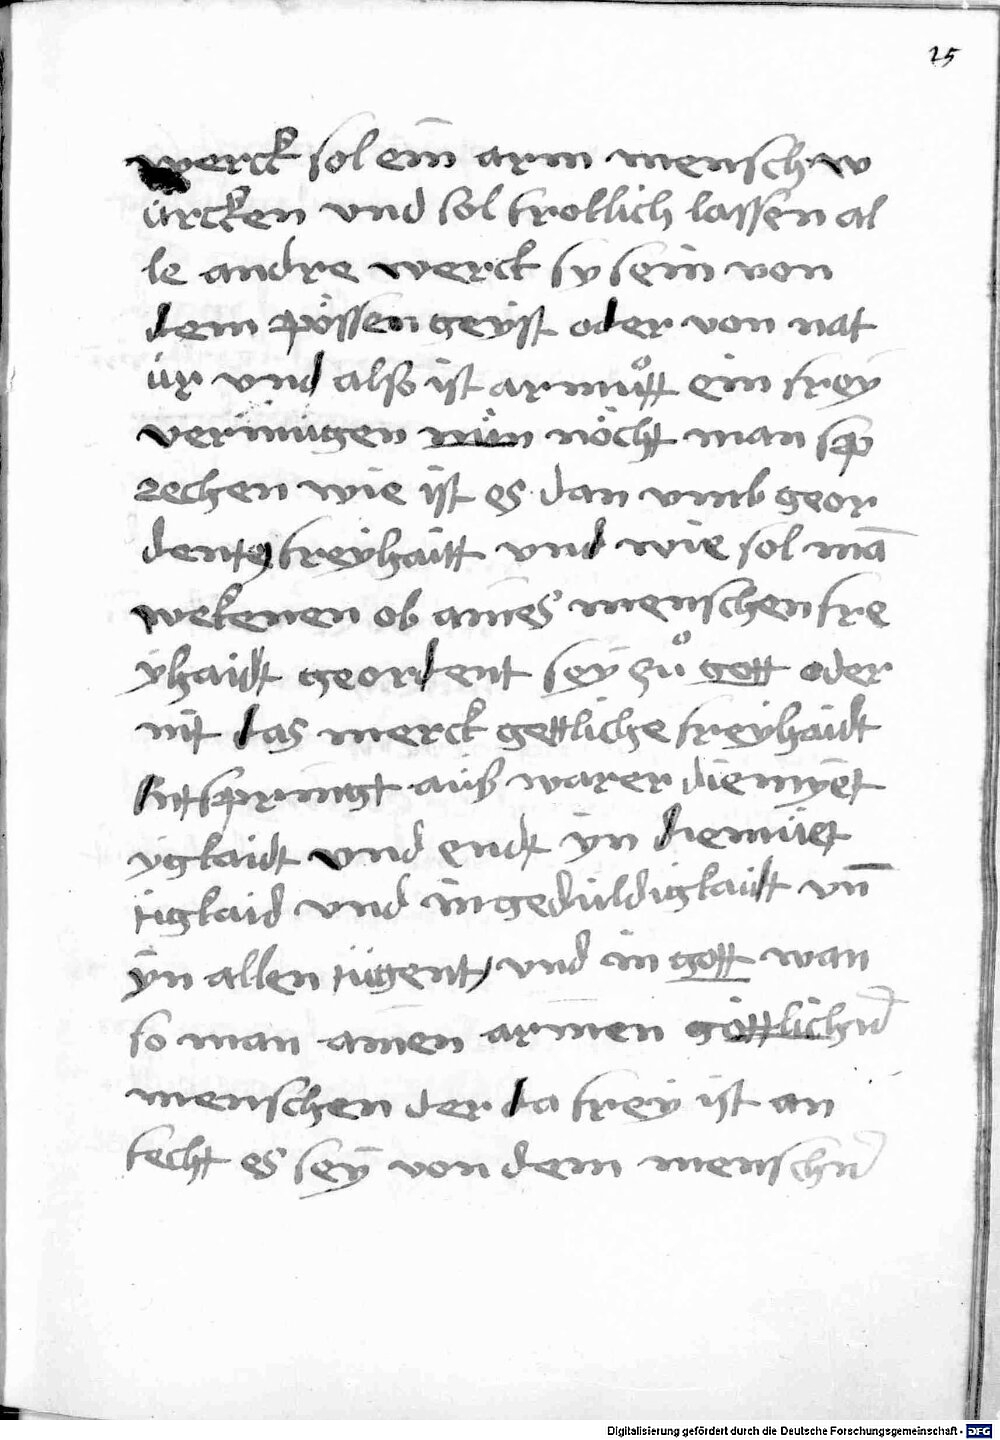 25
werck sol ein arm mensch w
ürcken vnd sol frollich lassen al
le andre werck sy sein von
dem pössen geyst oder von nat
ür vnd also ist armuͦtt ein frey
vermügen nün möcht man sp
rechen wie ist es dan vmb geor
dente freyhaitt vnd wie sol mā
wekenen ob aines menschen fre
yhaidt geordent sey zuͦ gott oder
nit das merck gettliche freyhaidt
entspringt auß warer diemyet
ygkaidt vnd endt yn diemüet
igkaid vnd in gedüldigkaidt vn̄
yn allen tügent vnd in gott wan
so man amen armen göttlichn̄
menschen der da frey ist an
fecht es sey von dem menschn̄
Digitalisierung gefördert durch die Deutsche Forschungsgemeinschaft - DFG